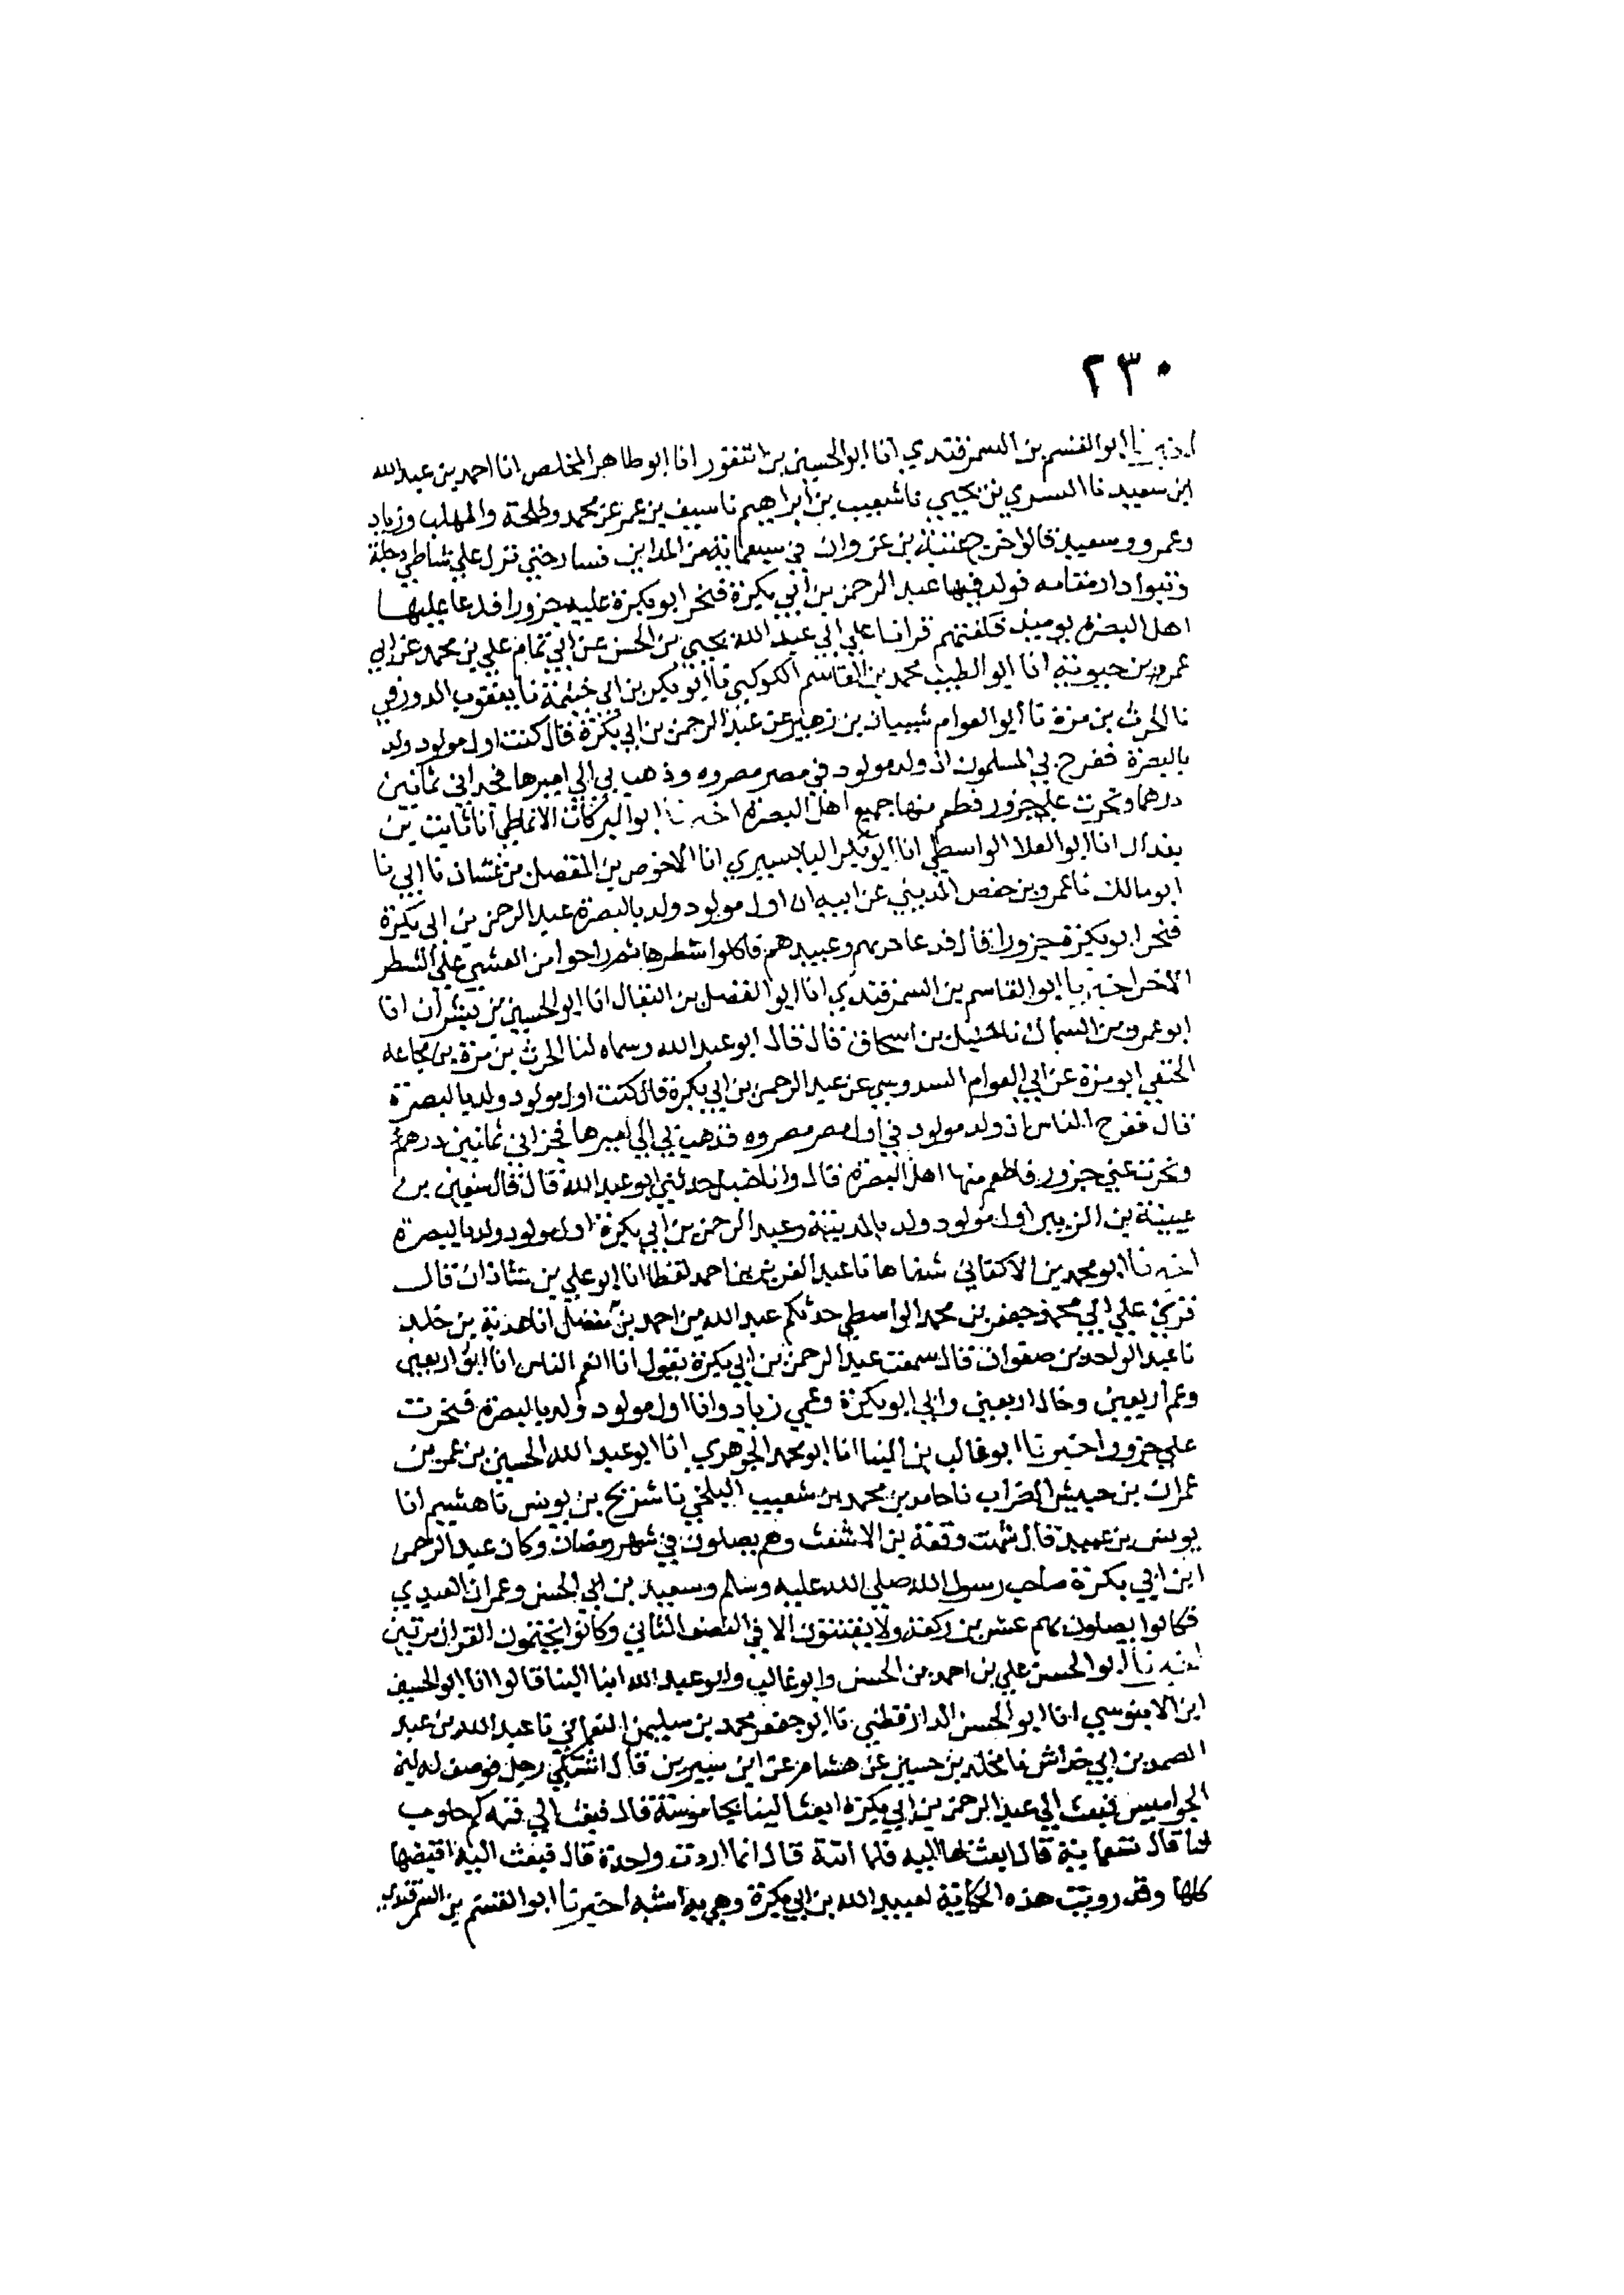 ٢٣٠
اخبرنا ابو القسم بن السمرقندي انا ابو الحسين بن النقور انا ابو طاهر المخلص انا احمد بن عبد الله
ابن سعيد نا السري بن يحيي نا شعيب بن ابراهيم نا سيف بن عمر عن محمد وطلحة والمهلب وزياد
وعمرو وسعيد قالوا خرج عتبة بن غزوان في سبعماية من المداين فسار حتي نزل علي شاطي دجلة
وتبوا دار مقامه فولد فيها عبد الرحمن بن ابي بكرة فنحر ابو بكرة عليه جزورا فدعا عليها
اهل البصرة يوميذ فكفتهم قرانا علي ابي عبد الله يحيي بن الحسن عن ابي تمام علي بن محمد عن ابي
عمر بن حيويه انا ابو الطيب محمد بن القاسم الكوكبي نا ابو بكر بن ابي خيثمة نا يعقوب الدورقي
نا الحرث بن مرة نا ابو العوام شيبان بن زهير عن عبد الرحمن بن ابي بكرة قال كنت اول مولود ولد
بالبصرة ففرح بي المسلمون اذ ولد مولود في مصر مصروه وذهب بي الي اميرها فجداني ثمانين
درهما ونحرت علي جزور فطعم منها جميع اهل البصرة اخبرنا ابو البركات الانماطي انا ثابت بن
بندار انا ابو العلا الواسطي انا ابو بكر البابسيري انا الاحوص بن المفضل بن غسان نا ابي نا
ابو مالك نا عمرو بن حفص المديني عن ابيه ان اول مولود ولد بالبصرة عبد الرحمن بن ابي بكرة
فنحر ابو بكرة جزورا قال فدعا حرهم وعبيدهم فاكلوا شطرها ثم راحوا من العشي علي الشطر
الاخر اخبرنا ابو القاسم بن السمرقندي انا ابو الفضل بن البقال انا ابو الحسين بن بشران انا
ابو عمرو بن السماك نا حنبل بن اسحاق قال قال ابو عبد الله وسماه لنا الحرث بن مرة بن مجاعه
الحنفي ابو مرة عن ابي العوام السدوسي عن عبد الرحمن بن ابي بكرة قال كنت اول مولود ولد بالبصرة
قال ففرح الناس اذ ولد مولود في اول مصر مصروه فذهب بي الي اميرها فجزاني ثمانين درهم
ونحرت عني جزور فاطعم منها اهل البصرة قال وانا حنبل حدثني ابو عبد الله قال قال سفين بن
عيينة بن الزبير اول مولود ولد بالمدينة وعبد الرحمن بن ابي بكرة اول مولود ولد بالبصرة
اخبرنا ابو محمد بن الاكفاني شفاها نا عبد العزيز بن احمد لفظا انا ابو علي بن شاذان قال
قري علي ابي محمد جعفر بن محمد الواسطي حدثكم عبد الله بن احمد بن حنبل انا هدبة بن خلد
نا عبد الواحد بن صفوان قال سمعت عبد الرحمن بن ابي بكرة يقول انا انعم الناس انا ابو اربعين
وعم اربعين وخال اربعين وابي ابو بكرة وعمي زياد وانا اول مولود ولد بالبصرة فنحرت
علي جزور اخبرنا ابو غالب بن البنا انا ابو محمد الجوهري انا ابو عبد الله الحسين بن عمر بن
عمران بن حبيش الضراب نا حامد بن محمد بن شعيب البلخي نا سريج بن يونس نا هشيم انا
يونس بن عبيد قال شهدت وقعة بن الاشعث وهم يصلون في شهر رمضان وكان عبد الرحمن
ابن ابي بكرة صاحب رسول الله صلي الله عليه وسلم وسعيد بن ابي الحسن وعمران العبدي
فكانوا يصلون بهم عشرين ركعة ولا يقنتون الا في النصف الثاني وكانوا يختمون القران مرتين
اخبرنا ابو الحسن علي بن احمد بن الحسن وابو غالب وابو عبد الله ابنا البنا قالوا انا ابو الحسين
ابن الابنوسي انا ابو الحسن الدارقطني نا ابو جعفر محمد بن سليمن النعماني نا عبد الله بن عبد
الصمد بن ابي خداش نا مخلد بن حسين عن هشام عن ابن سيرين قال اشتكي رجل فوصف له لبن
الجواميس فبعث الي عبد الرحمن بن ابي بكرة ابعث الينا بجاموسة قال فبعث الي قيمه كم حلوب
لنا قال تسعماية قال ابعث بها اليه فلما اتته قال انما اردت واحدة قال فبعث اليه اقبضها
كلها وقد رويت هذه الحكاية لعبيد الله بن ابي بكرة وهي به اشبه اخبرنا ابو القسم بن السمرقندي